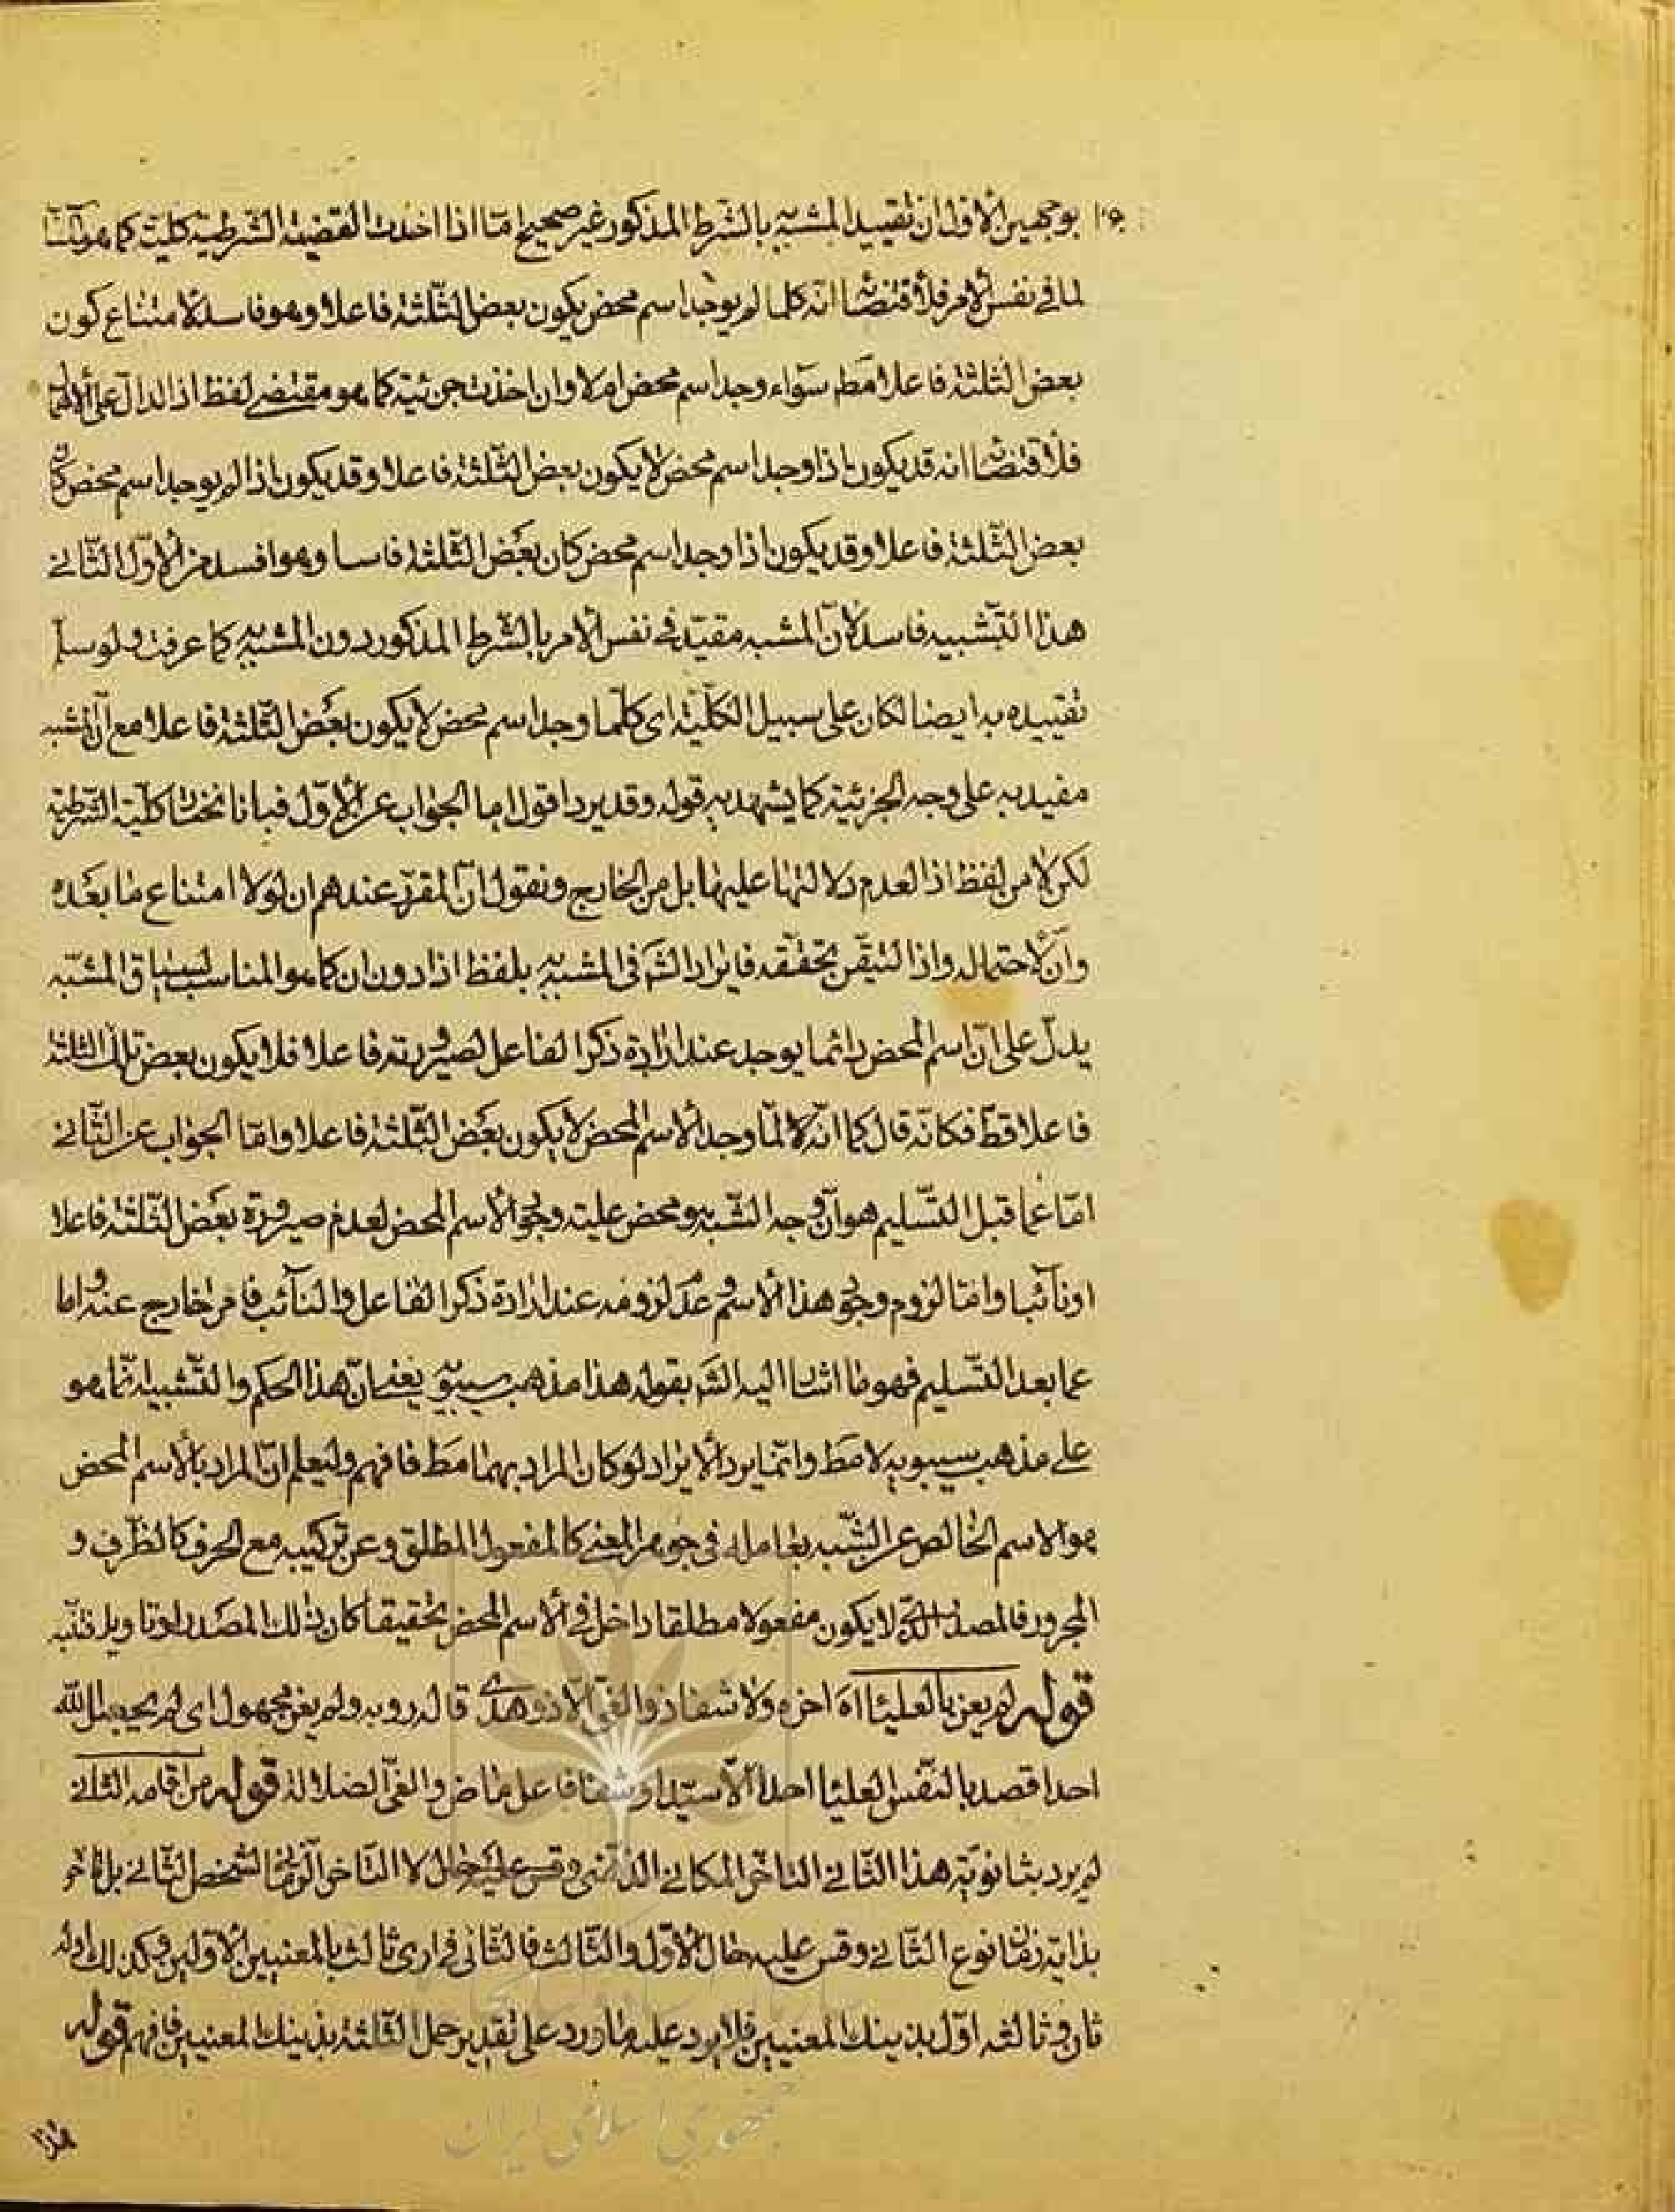 بوجهين الاول ان تقييد المشبه به بالشرط المذكور غير صحيح اما اذا اخذت القضية الشرطية كلية كما هو
لما في نفس الامر فلاقتضائها انه كلما لم يوجد اسم محض يكون بعض الثلثة فاعلا وهو فاسد لامتناع كون
بعض الثلثة فاعلا مط سواء وجد اسم محض ام لا وان اخذت جزئية كما هو مقتضى لفظ اذا الدال على
فلاقتضائها انه قد يكون اذا وجد اسم محض لا يكون بعض الثلثة فاعلا وقد يكون اذا لم يوجد اسم محض كان
بعض الثلثة فاعلا وقد يكون اذا وجد اسم محض كان بعض الثلثة فاسا وهو افسد من الاول الثاني
هذا التشبيه فاسد لان المشبه مقيد في نفس الامر بالشرط المذكور دون المشبه به كما عرفت ولو سلم
تقييده به ايضا لكان على سبيل الكلية اي كلما وجد اسم محض لا يكون بعض الثلثة فاعلا مع ان المشبه
مفيد به على وجه الجزئية كما يشهد به قوله وقد يرد اقول اما الجواب عن الاول فبانا نختار كلية الشرطية
لكن لا من لفظ اذا لعدم دلالتها عليها بل من الخارج ونقول ان المقرر عندهم ان لولا امتناع ما بعده
وان لاحتماله واذا لتيقن تحققه فايراد الش في المشبه به بلفظ اذا دون ان كما هو المناسب لسياق المشبه
يدل على ان اسم المحض دائما يوجد عند ارادة ذكر الفاعل لصيرورته فاعلا فلا يكون بعض تلك الثلثة
فاعلا قط فكانه قال كما انه لا لما وجد الاسم المحض لا يكون بعض الثلثة فاعلا واما الجواب عن الثاني
اما عما قبل التسليم هو ان وجه الشبه هو محض علية وجود الاسم المحض لعدم صيرورة بعض الثلثة فاعلا
او نائبا واما لزوم وجود هذا الاسم وعدم لزومه عند ارادة ذكر الفاعل والنائب فامر خارج عنه واما
عما بعد التسليم فهو ما اشار اليه الش بقوله هذا مذهب سيبويه يعني ان هذا الحكم والتشبيه انما هو
على مذهب سيبويه لا مط وانما يرد الايراد لو كان المراد بهما مط فافهم وليعلم ان المراد بالاسم المحض
هو الاسم الخالص عن الشبه بعامله في جوهر المعنى كالمفعول المطلق وعن تركيبه مع الحرف كالظرف و
المجرور فالمصدر الذي لا يكون مفعولا مطلقا داخل في الاسم المحض تحقيقا كان ذلك المصدر او تاويلا فتنبه
قوله لم يعن بالعلياء اه اخره ولا شفا ذو الغي الا ذو هدى قاله روبه ولم يعن مجهول اي لم يجعل الله
احدا قصد بالنفس العليا احدا الا سيدا وشفا فاعل ماض والغي الضلالة قوله من اقامه الثاني
لم يرد بثانوية هذا الثاني التاخر المكاني الذهني وقس عليه حال لا التاخر الزماني لشخص الثاني بل تاخر
بذاته زمان نوع الثاني وقس عليه حال الاول والثالث فالثاني في ارى ثالث بالمعنيين الاولين وكذلك اوله
ثان وثالثه اول بذينك المعنيين فلا يرد عليه ما ورد على تقدير حمل الثلثة بذينك المعنيين فافهم قوله
هذا